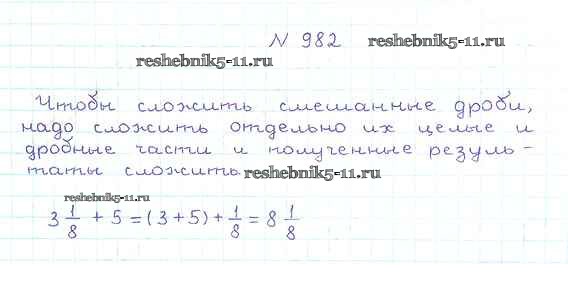 N 982 reshebnik5-11.ru
reshebnik5-11.ru
Чтобы сложить смешанные дроби,
надо сложить отдельно их целые и
дробные части и полученные резуль-
таты сложить reshebnik5-11.ru
reshebnik5-11.ru
3 1/8 + 5 = (3 + 5) + 1/8 = 8 1/8